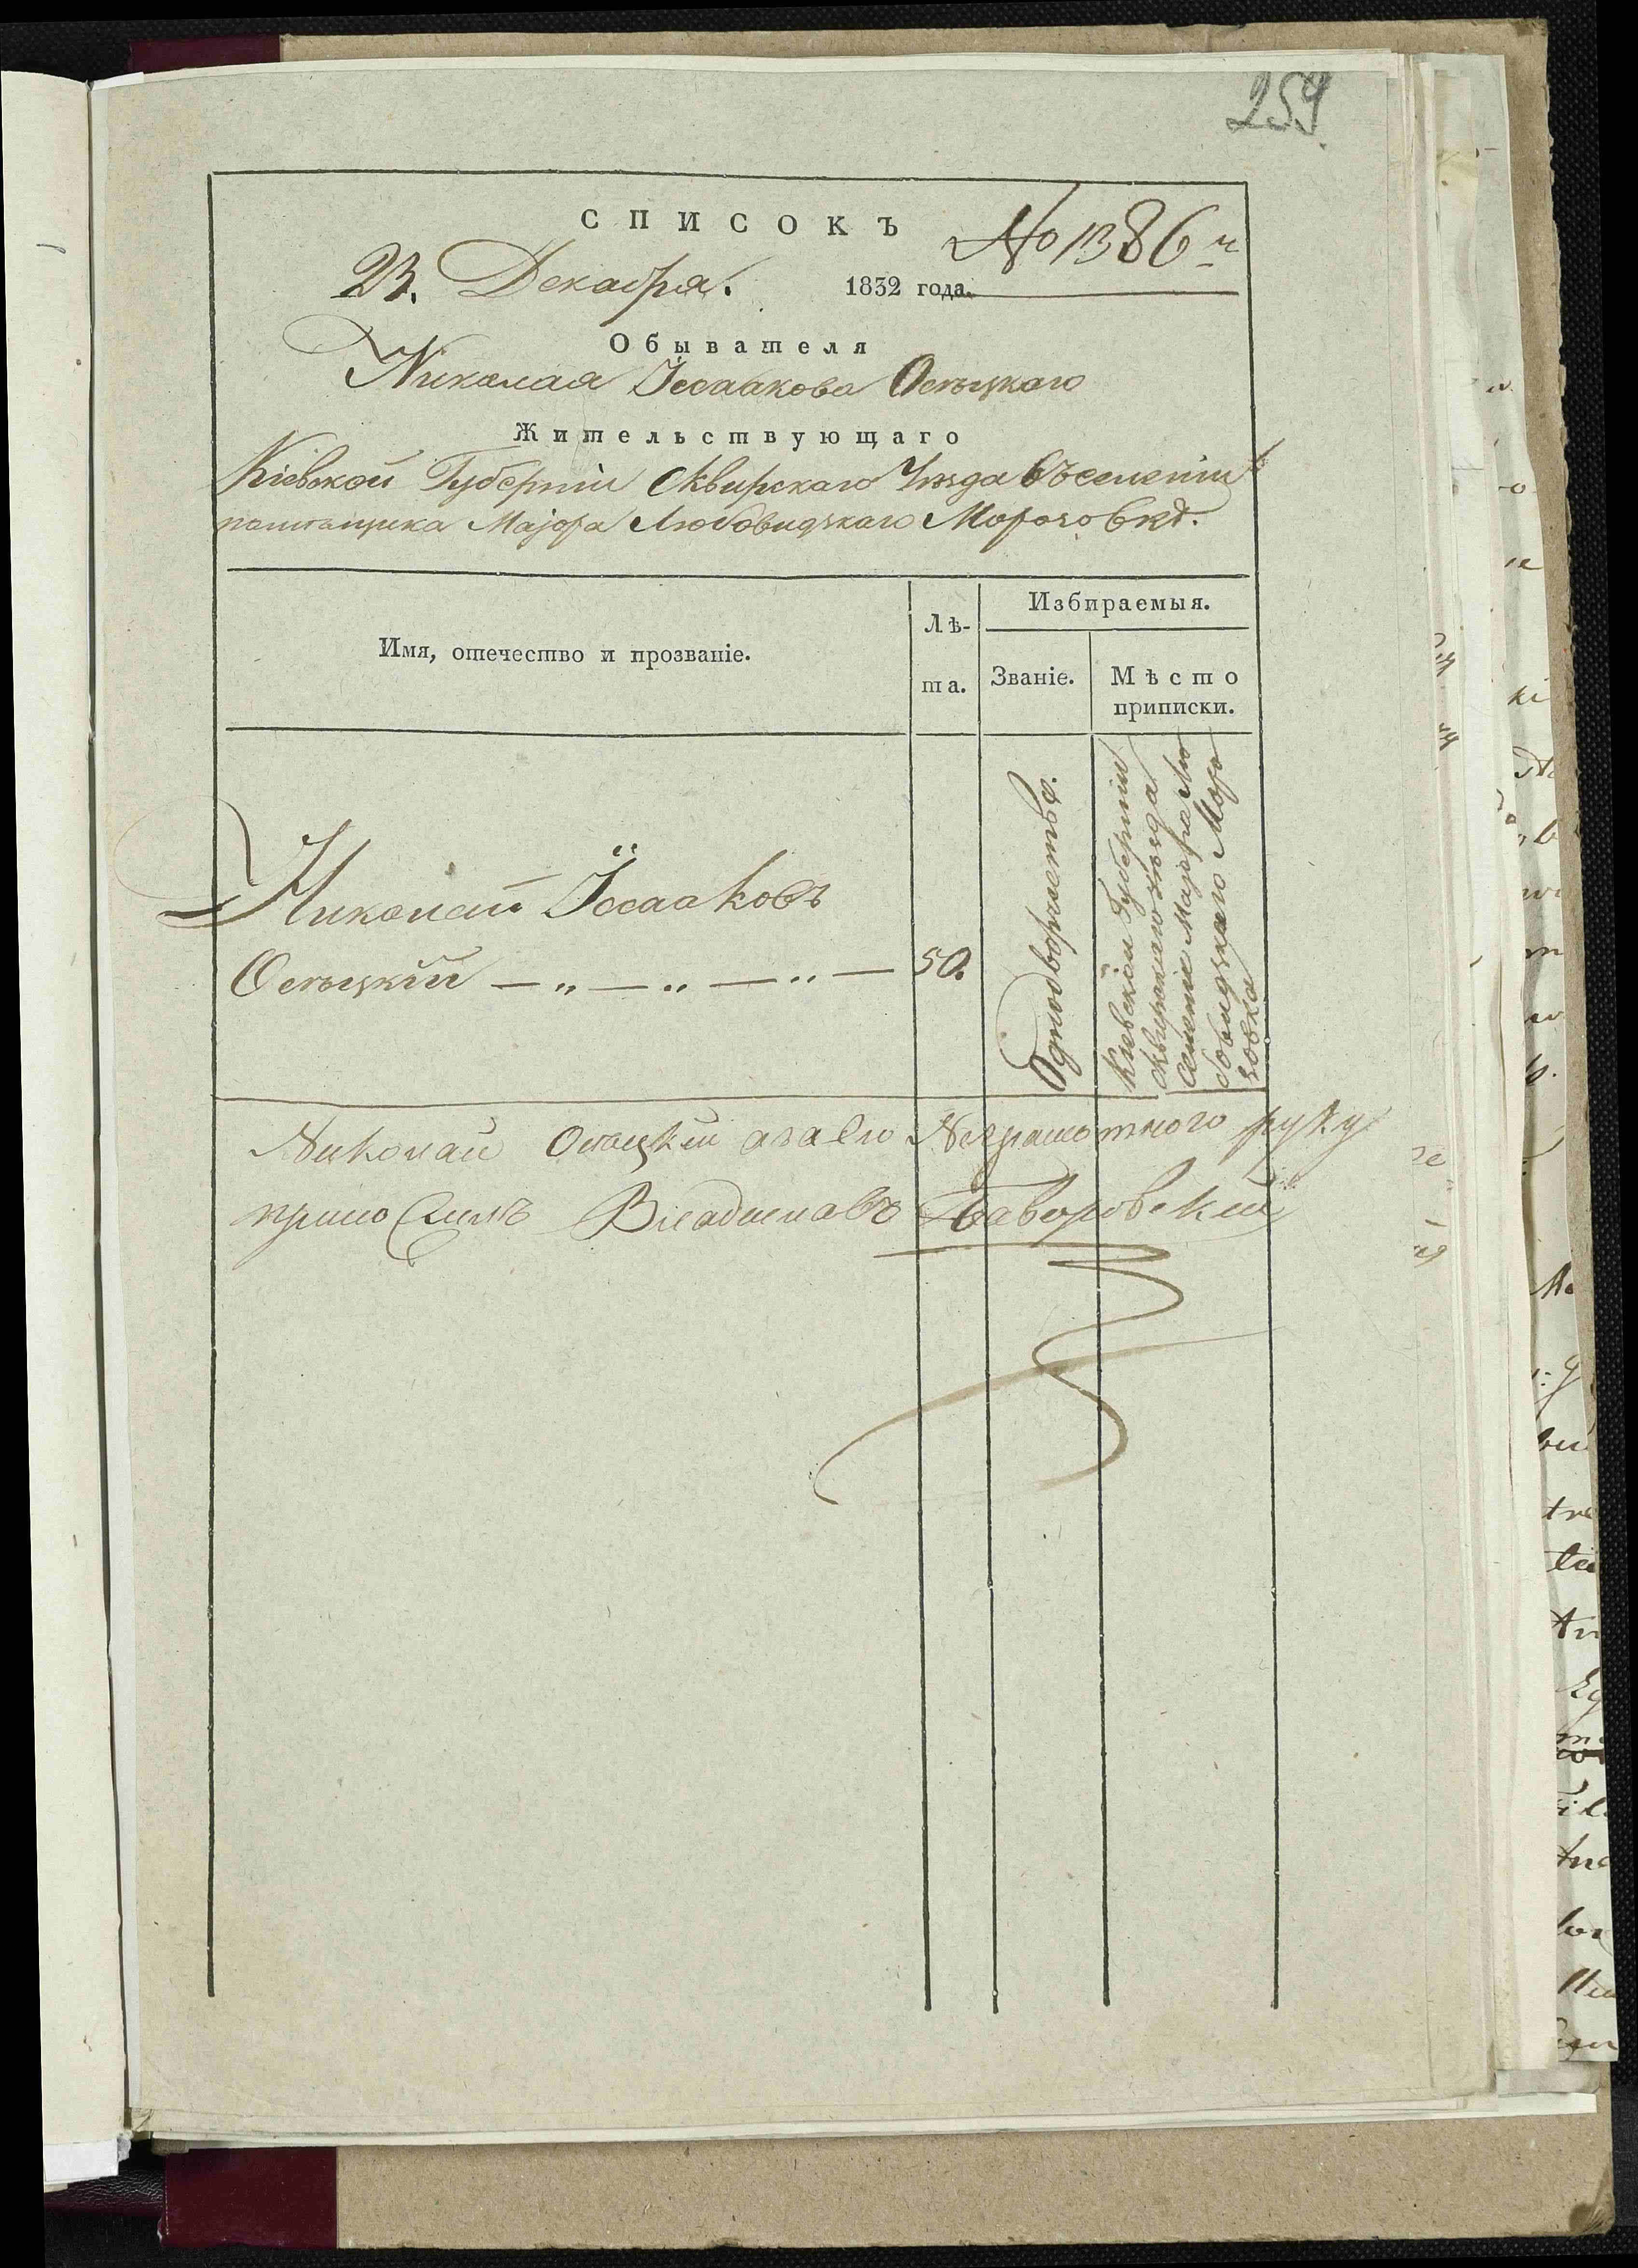 259
СПИСОКЪ
№ 1386й
23. Декабря. 1832 года.
Обывателя
Николая Іссаакова Осѣцкаго
Жительствующаго
Кіевской Губерніи Сквирскаго Уѣзда въ селеніи
помѣщика Маjора Любовидзкаго Морозовкѣ.
Имя, отечество и прозваніе.
Лѣ-
та.
Избираемыя.
Званіе.
Мѣсто
приписки.
Николай Іссааковъ
Осѣцкій — „ — „ — „ —
50.
Однодворчество.
Кіевской Губерніи
Сквирскаго уѣзда
Селеніе Маjора Лю
бовидзкаго Моро
зовка
Николай Осѣцкий а за его Неграмотного руку
приложилъ Владиславъ Баворовский